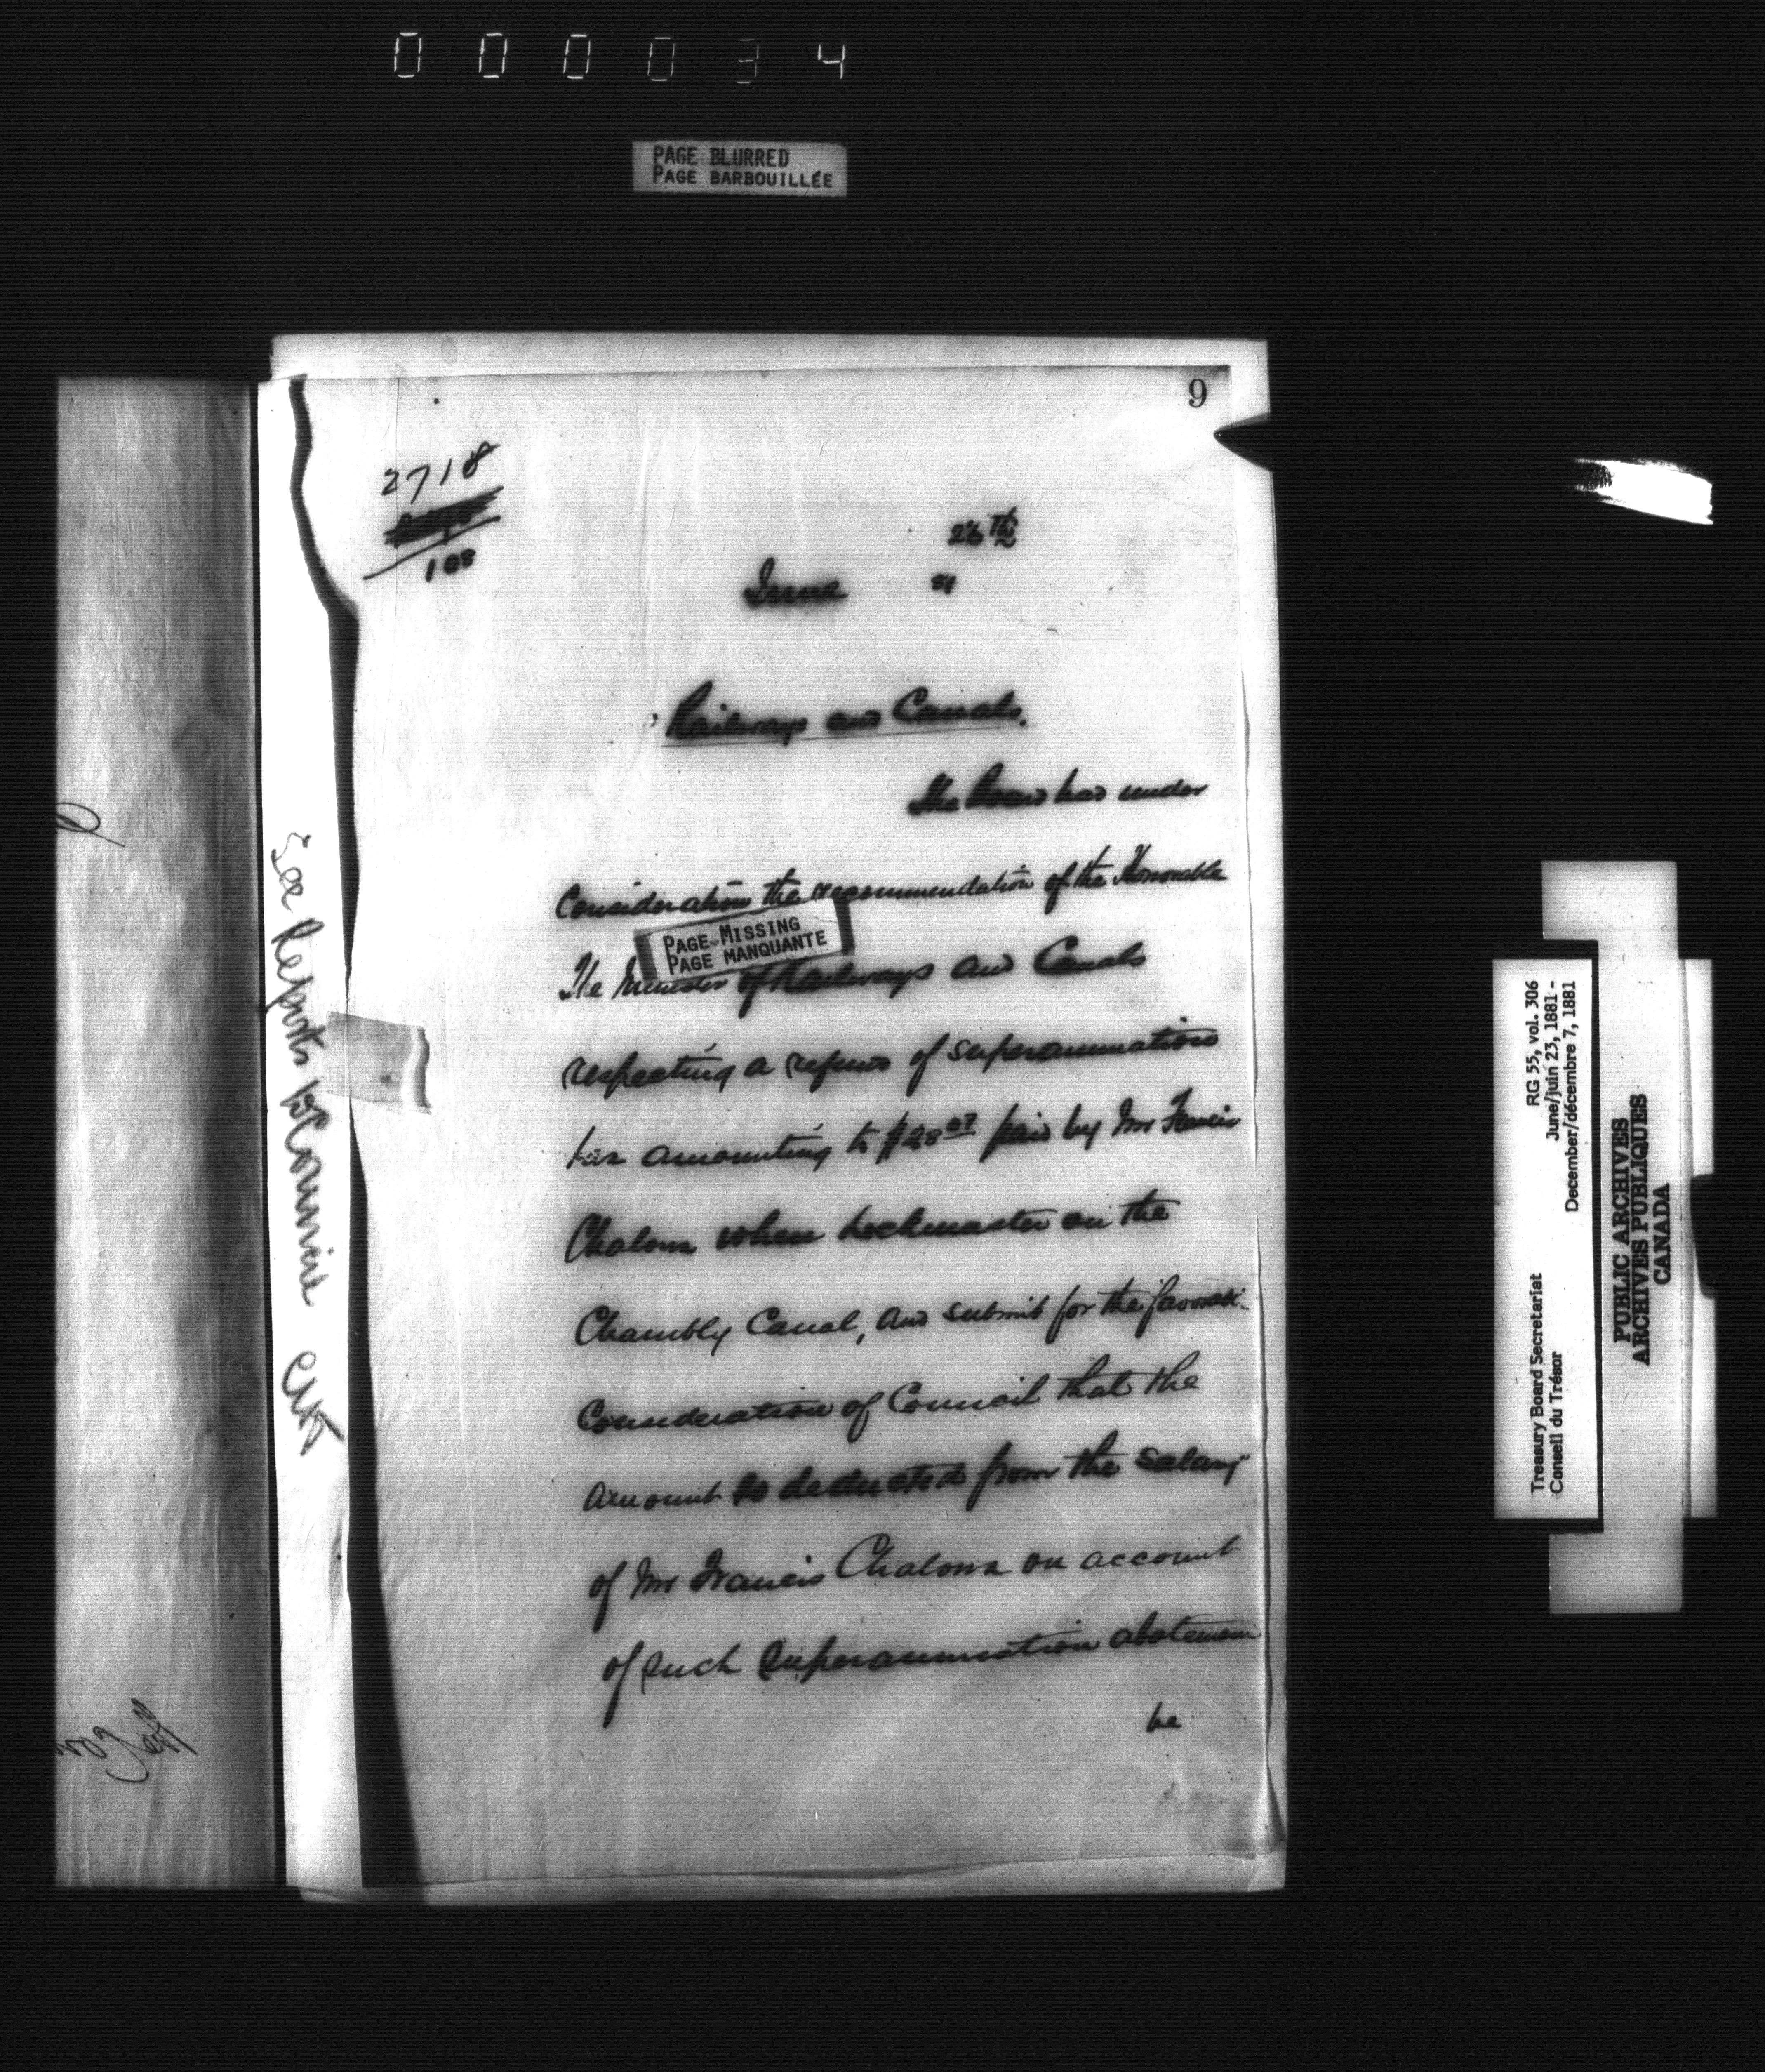 000034
PAGE BLURRED
PAGE BARBOUILLÉE
9
2718
108
26th
June 81
Railways and Canals.
The Board has under
Consideration the recommendation of the Honorable
PAGE MISSING
PAGE MANQUANTE
The Minister of Railways and Canals
respecting a refund of superannuation
tax amounting to $28 07 paid by Mr Francis
Chalom when Lockmaster on the
Chambly Canal, and submit for the favorable
Consideration of Council that the
amount so deducted from the salary
of Mr Francis Chalom on account
of such superannuation abatement
be
See Reports to Council
RG 55, vol. 306
June/juin 23, 1881 -
December/décembre 7, 1881
Treasury Board Secretariat
Conseil du Trésor
PUBLIC ARCHIVES
ARCHIVES PUBLIQUES
CANADA